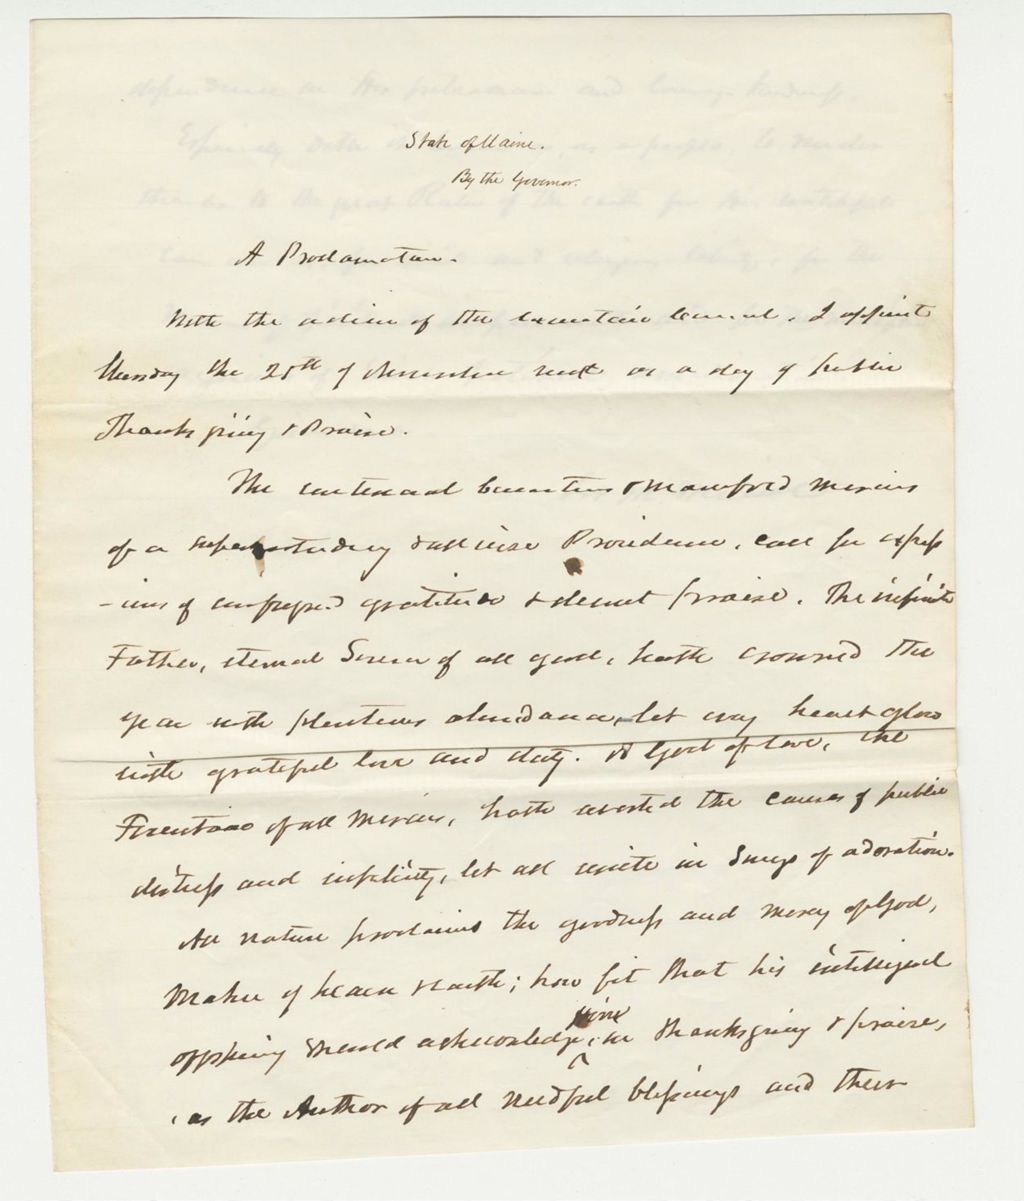 State of Maine.
By the Governor.
A Proclamation.
With the advice of the Executive Council, I appoint
Thursday the 25th of November next as a day of public
Thanksgiving & Praise.
The continued bounties & manifold mercies
of a superintending & all wise Providence, call for express
-ions of unfeigned gratitude & devout praise. The infinite
Father, eternal Source of all good, hath crowned the
year with plenteous abundance, let every heart glow
with grateful love and duty. A God of love, the
Fountain of all mercies, hath averted the causes of public
distress and infelicity, let all unite in Songs of adoration.
All nature proclaims the goodness and mercy of God,
Maker of heaven & earth; how fit that his intelligent
offspring should acknowledge, him in thanksgiving & praise,
as the Author of all needful blessings and their